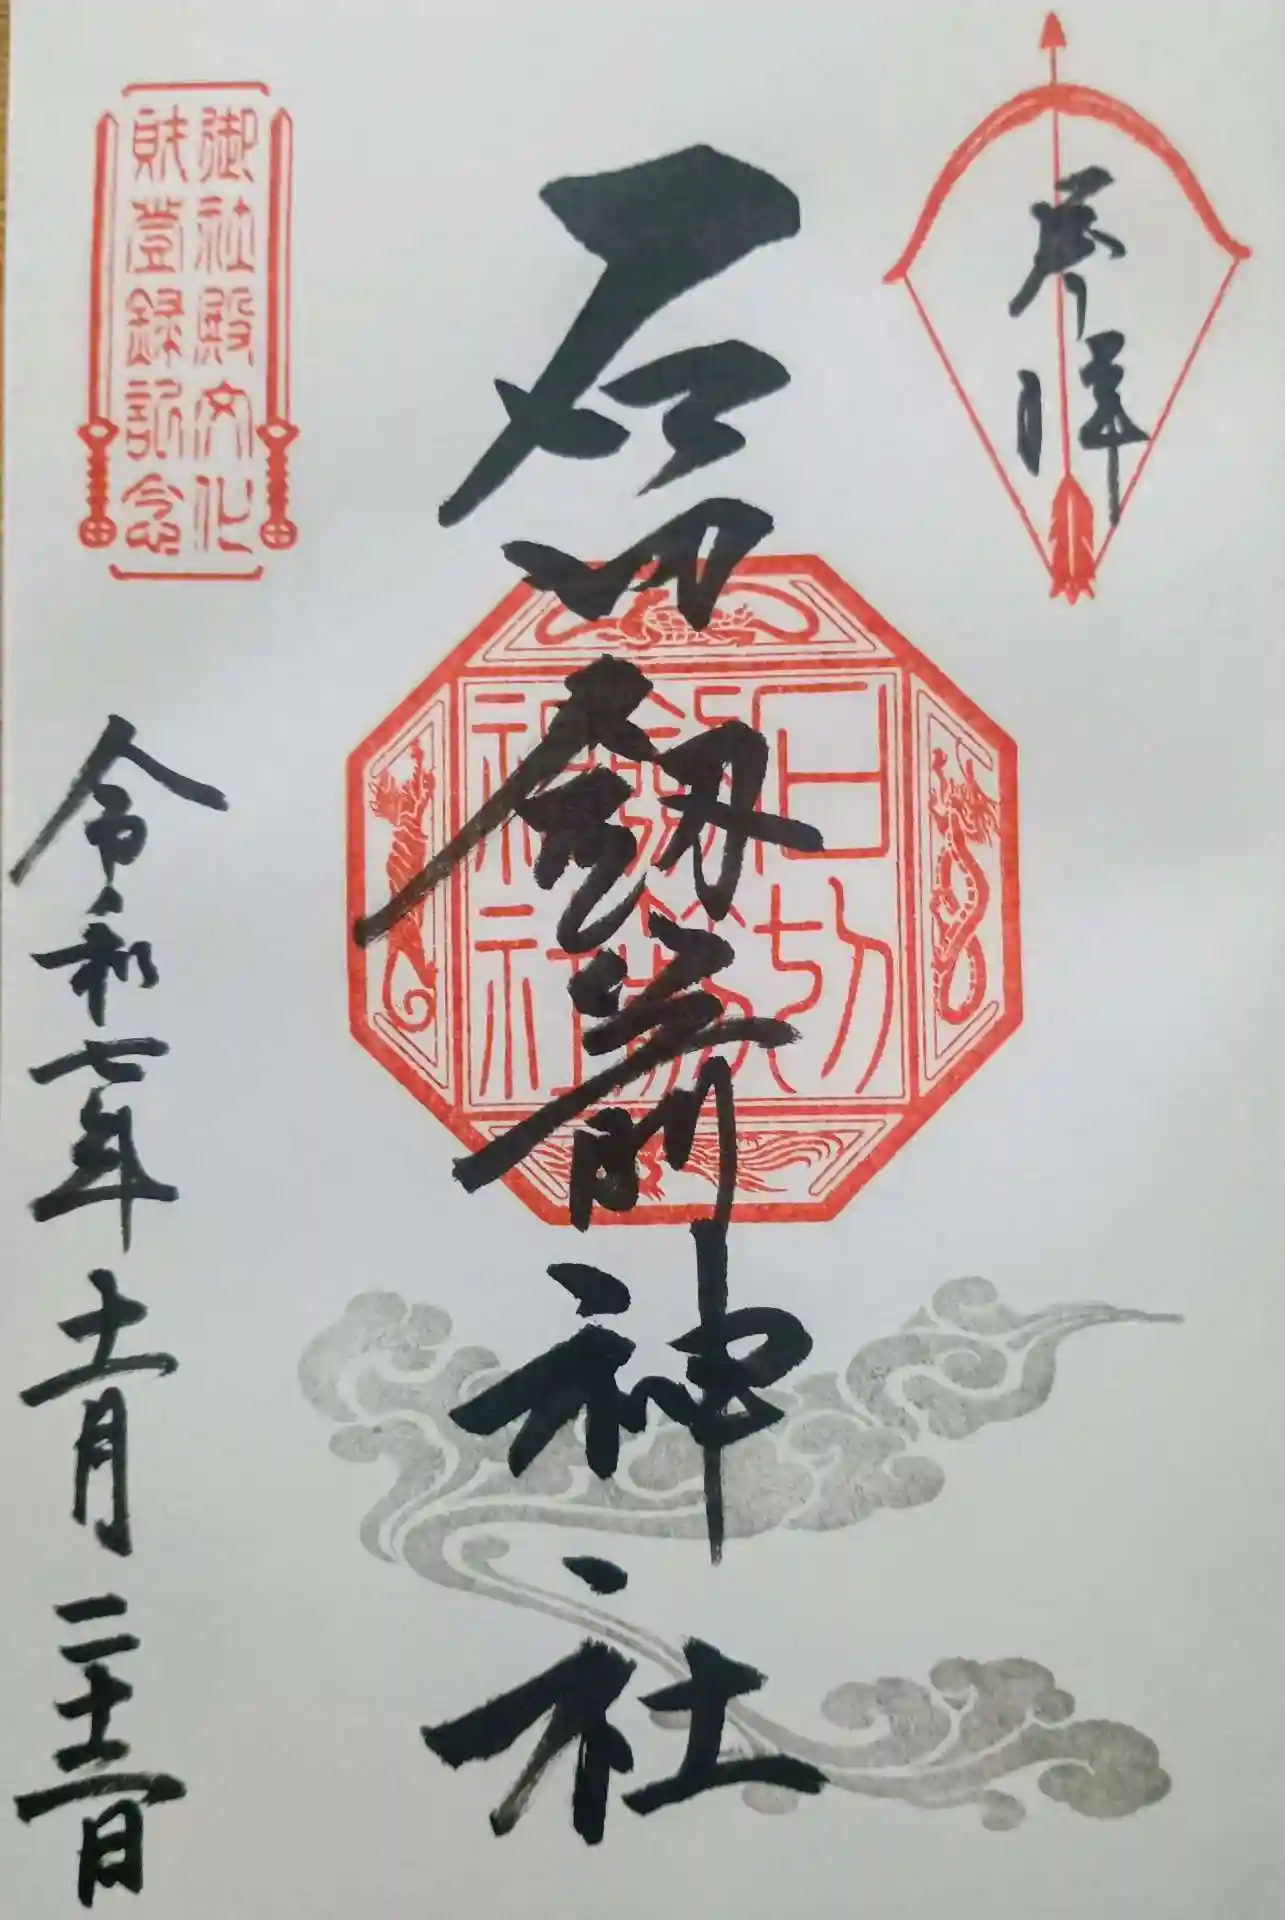 奉拝
石切劔箭神社
石切
劔箭
神社
御社殿文化
財登録記念
令和七年十一月二十三日